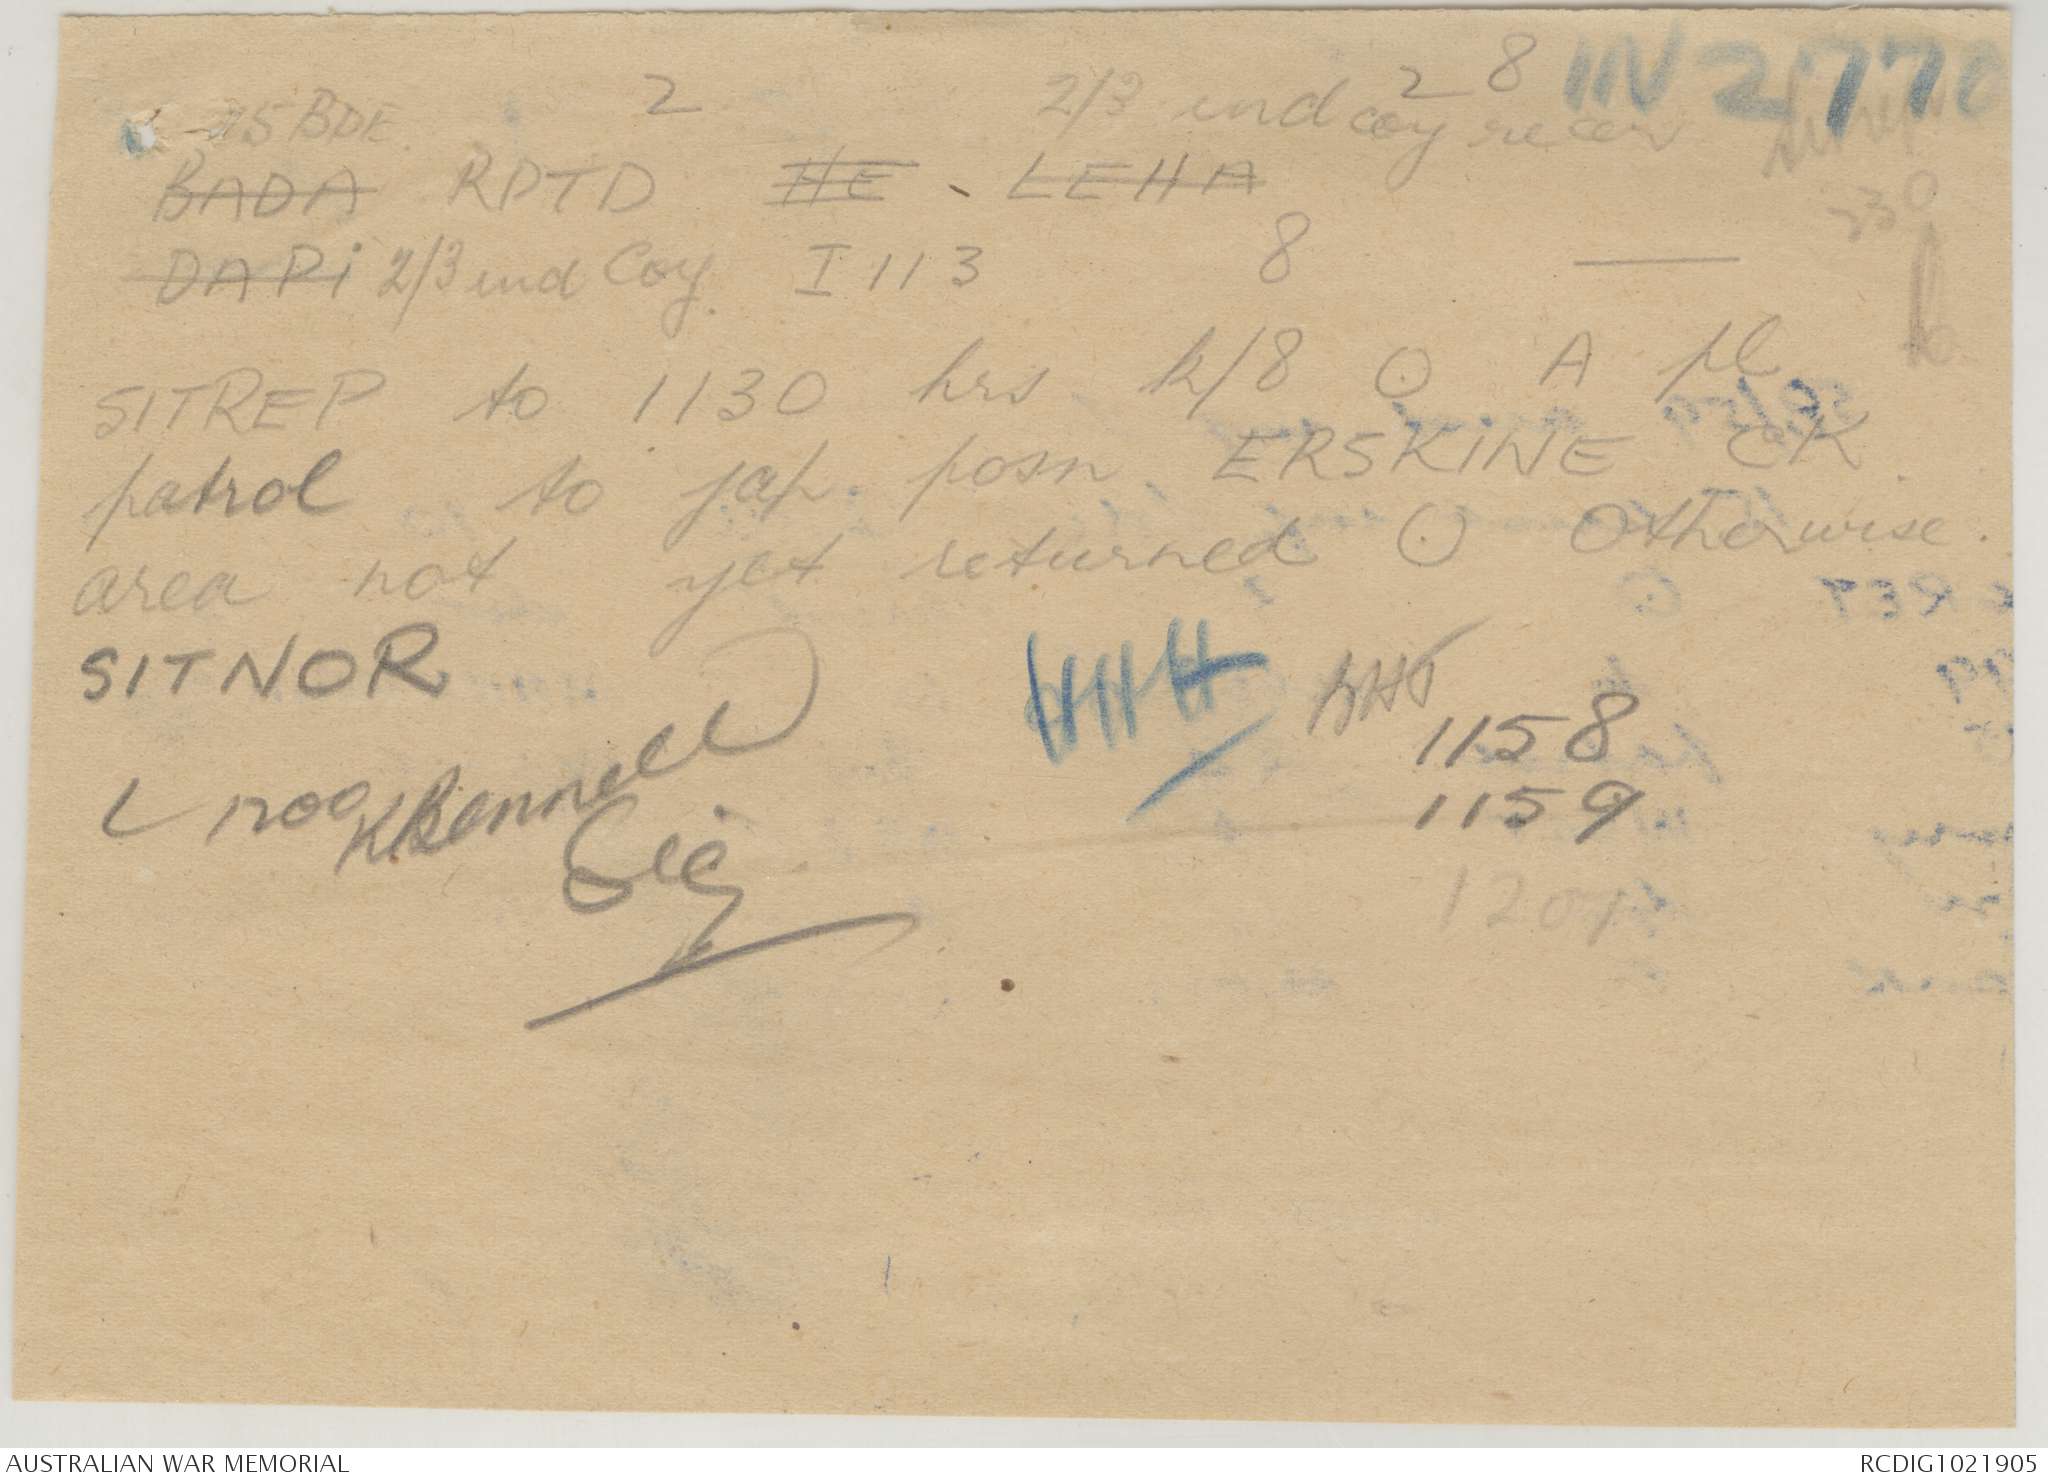 2 28 IN 2770
15 BDE. 2/3 ind coy
BADA RPTD HE - LEHA
DAPi 2/3 ind Coy. I 113 8 230
SITREP to 1130 hrs k/8 ⊙ A pl
patrol to jap. posn. ERSKINE CK.
area not yet returned ⊙ Otherwise.
SITNOR
1158
L 1200 KBennell 1159
Sig 1201
AUSTRALIAN WAR MEMORIAL RCDIG1021905